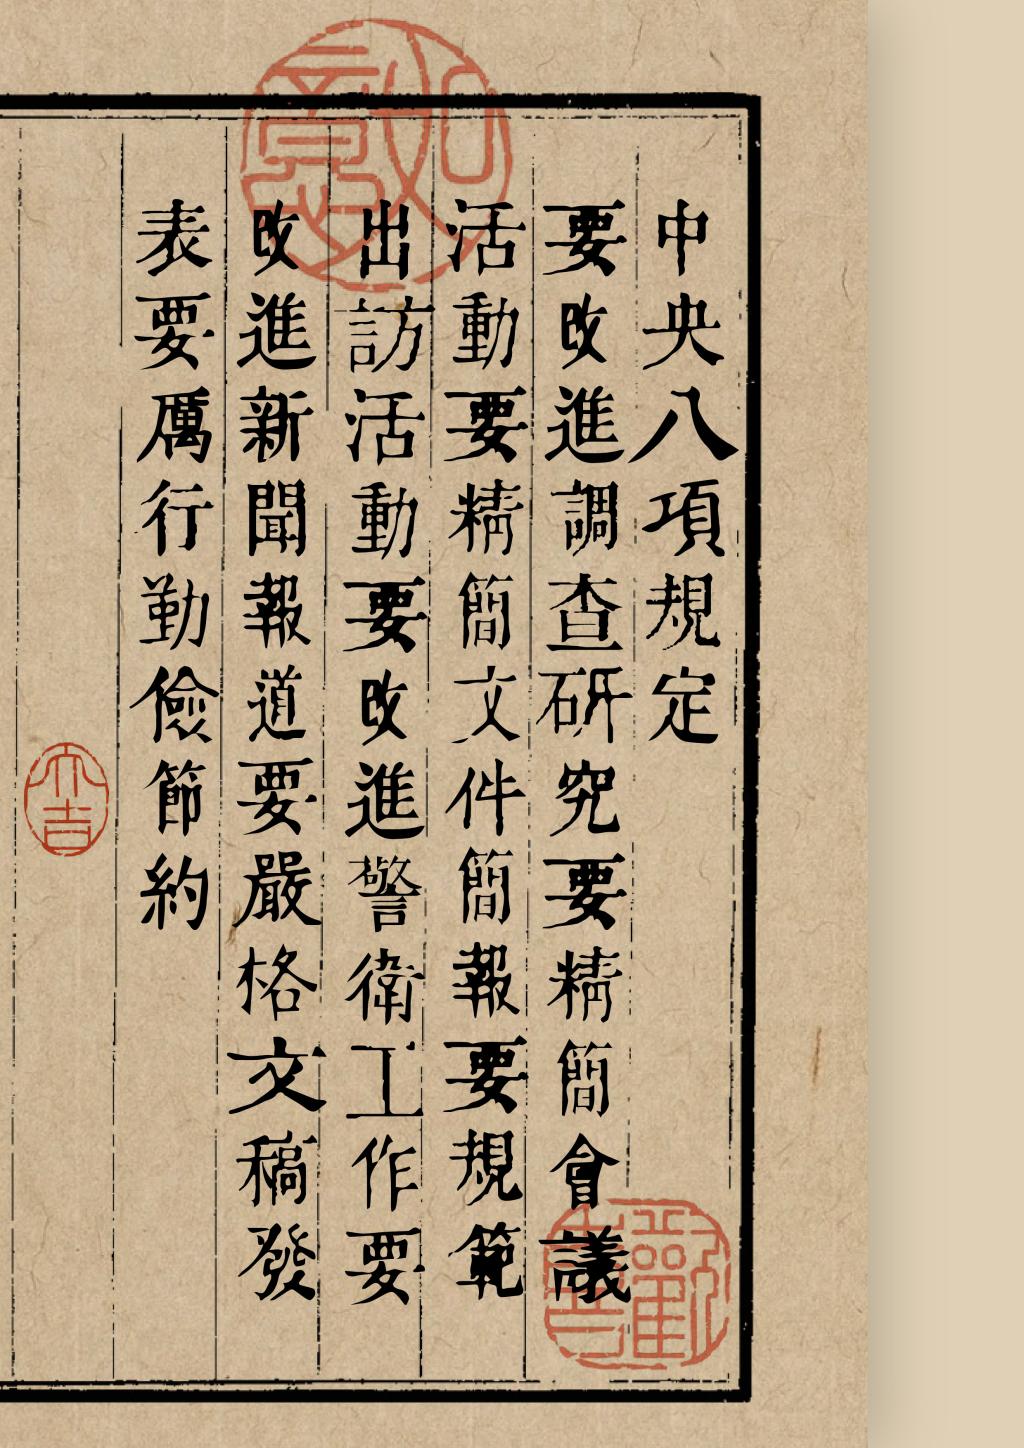 中央八項規定
要改進調查研究要精簡會議
活動要精簡文件簡報要規範
出訪活動要改進警衛工作要
改進新聞報道要嚴格文稿發
表要厲行勤儉節約
如意
大吉